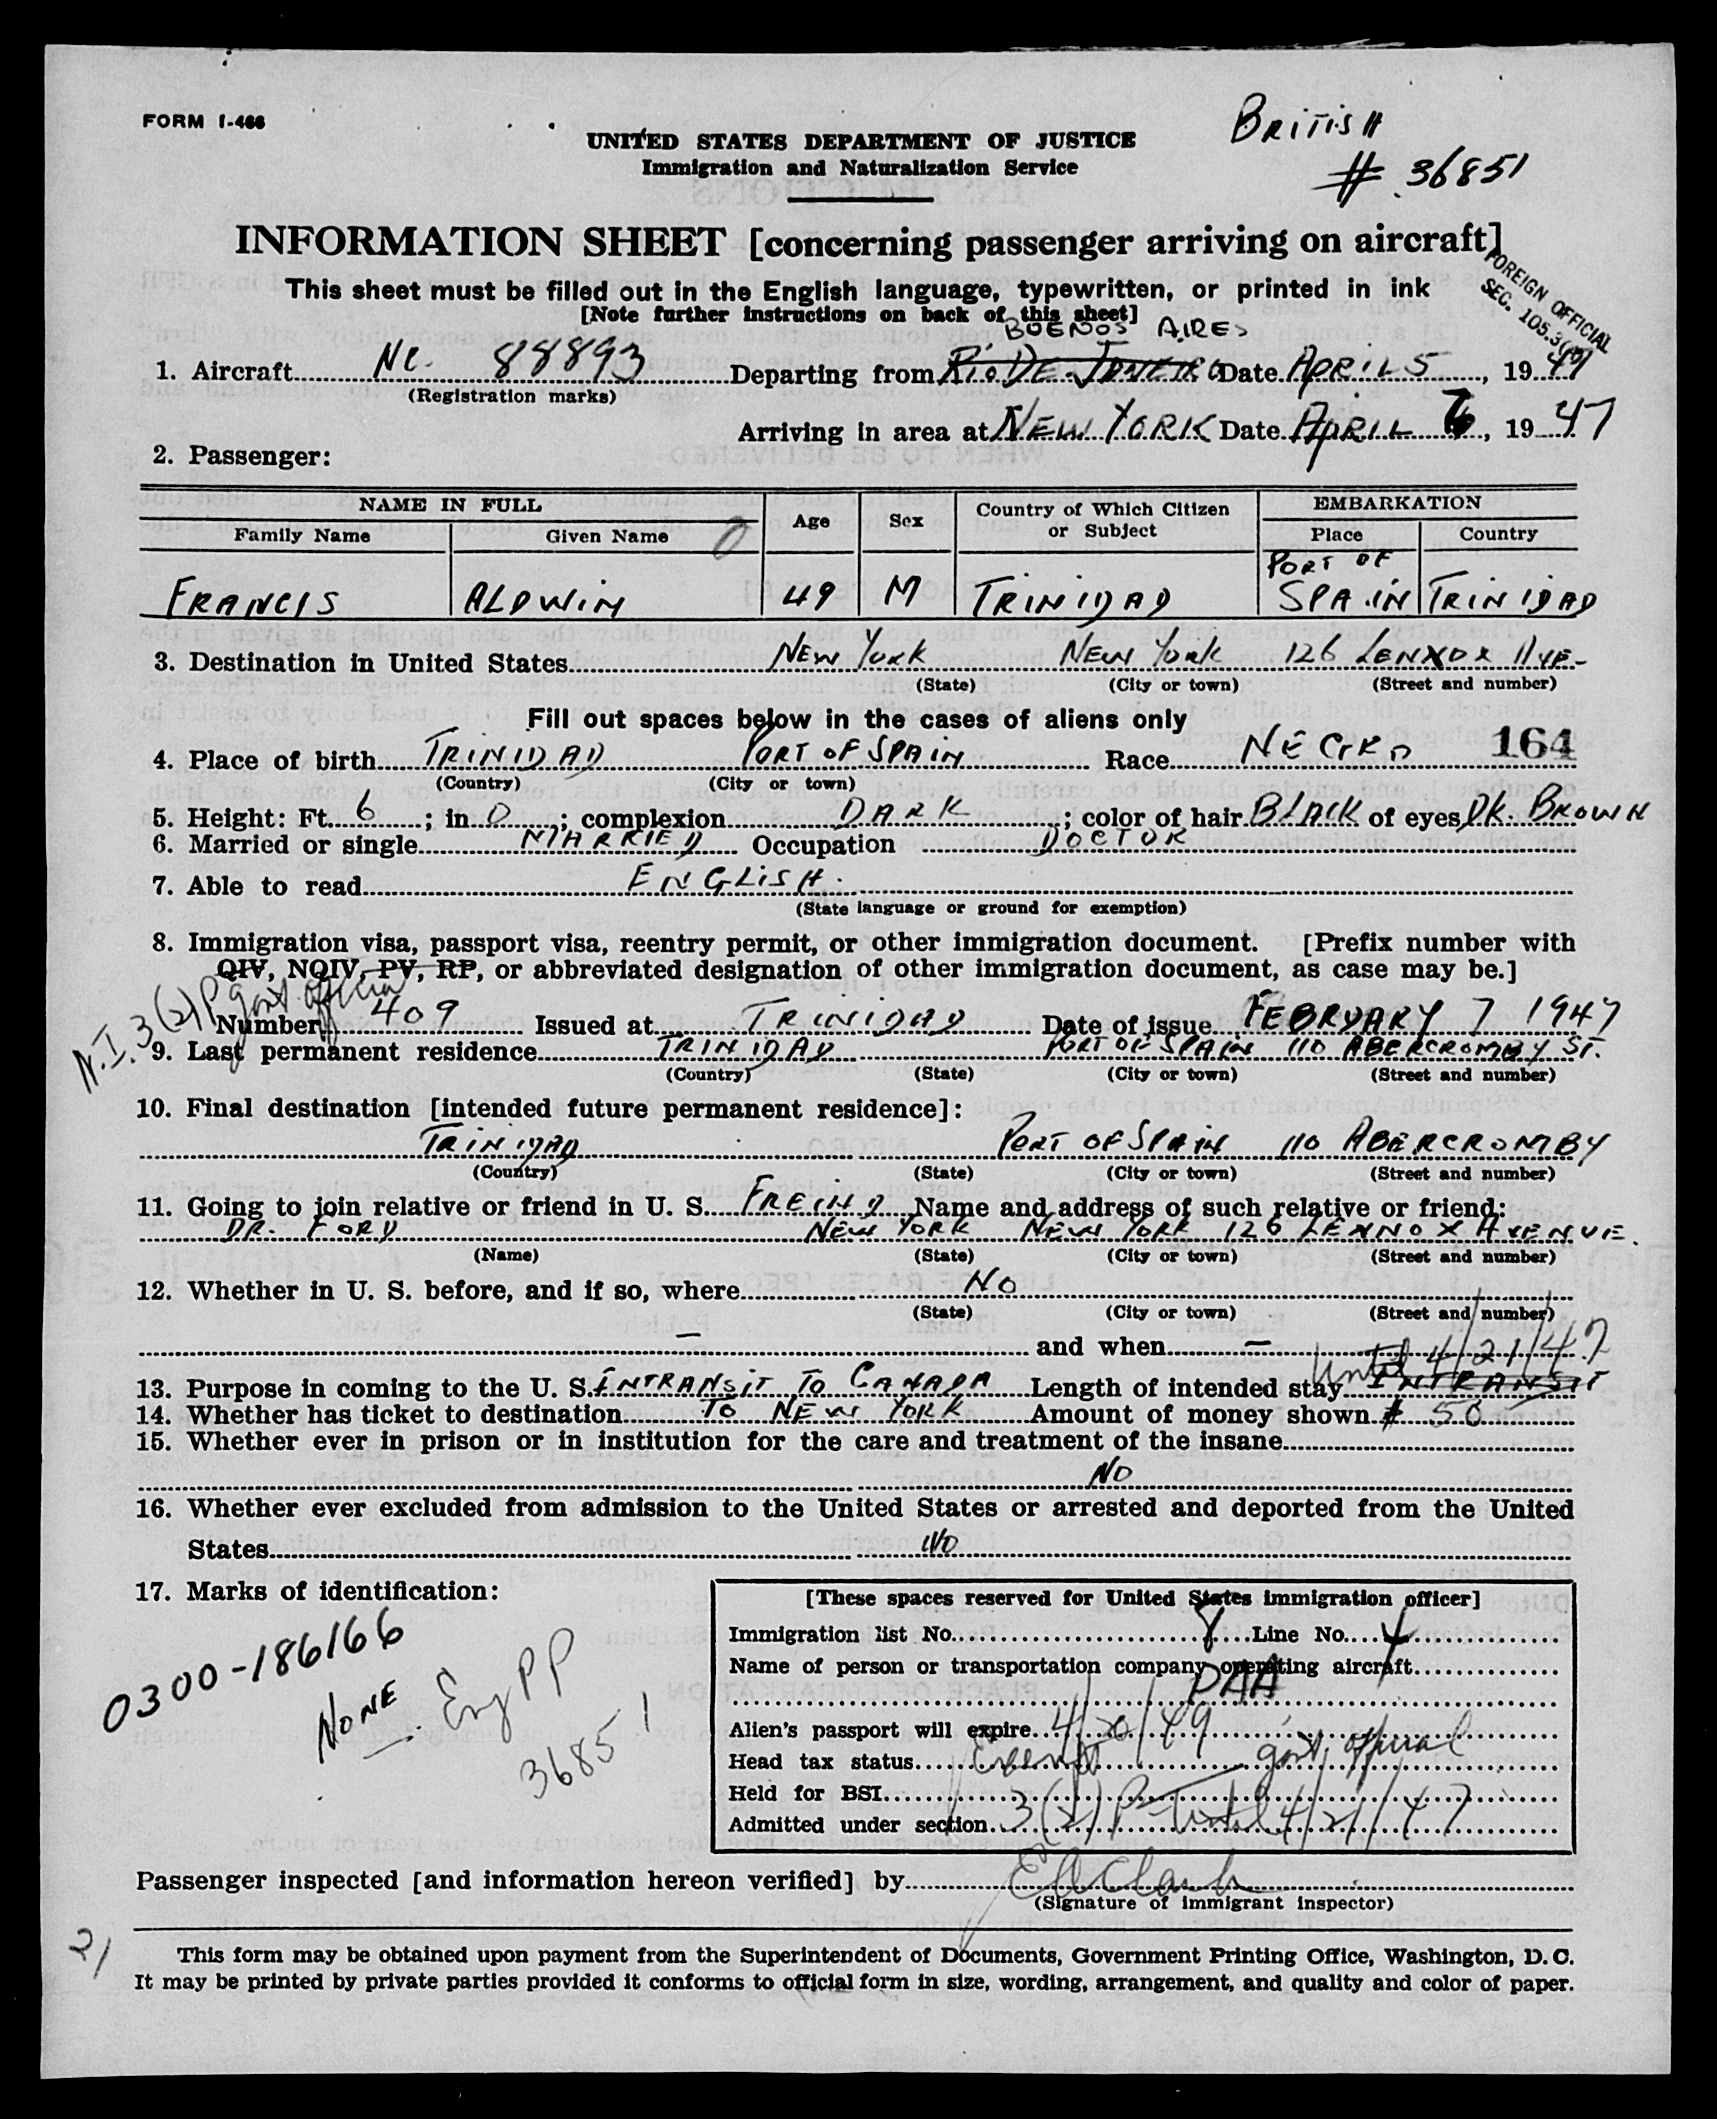 FORM I-466
BRITISH
# 36851
UNITED STATES DEPARTMENT OF JUSTICE
Immigration and Naturalization Service
INFORMATION SHEET [concerning passenger arriving on aircraft]
FOREIGN OFFICIAL
SEC. 105.3
This sheet must be filled out in the English language, typewritten, or printed in ink
[Note further instructions on back of this sheet]
BUENOS AIRES
1. Aircraft NC. 88893 Departing from RIO DE JANEIRO Date APRIL 5, 1947
(Registration marks)
Arriving in area at NEW YORK Date APRIL 6, 1947
2. Passenger:
NAME IN FULL Age Sex Country of Which Citizen or Subject EMBARKATION
Family Name Given Name Place Country
FRANCIS ALDWIN 49 M TRINIDAD PORT OF SPAIN TRINIDAD
3. Destination in United States NEW YORK NEW YORK 126 LENNOX AVE-
(State) (City or town) (Street and number)
Fill out spaces below in the cases of aliens only
4. Place of birth TRINIDAD PORT OF SPAIN Race NEGRO 164
(Country) (City or town)
5. Height: Ft. 6; in 0; complexion DARK; color of hair BLACK of eyes DK. BROWN
6. Married or single MARRIED Occupation DOCTOR
7. Able to read ENGLISH.
(State language or ground for exemption)
8. Immigration visa, passport visa, reentry permit, or other immigration document. [Prefix number with
QIV, NQIV, PV, RP, or abbreviated designation of other immigration document, as case may be.]
N.I. 3(2)P govt. official
Number 409 Issued at TRINIDAD Date of issue FEBRUARY 7 1947
9. Last permanent residence TRINIDAD PORT OF SPAIN 110 ABERCROMBY ST.
(Country) (State) (City or town) (Street and number)
10. Final destination [intended future permanent residence]:
TRINIDAD PORT OF SPAIN 110 ABERCROMBY
(Country) (State) (City or town) (Street and number)
11. Going to join relative or friend in U. S. FREIND Name and address of such relative or friend:
DR. FORD NEW YORK NEW YORK 126 LENNOX AVENUE.
(Name) (State) (City or town) (Street and number)
12. Whether in U. S. before, and if so, where NO
(State) (City or town) (Street and number)
— and when —
Until 4/21/47
13. Purpose in coming to the U. S. INTRANSIT TO CANADA Length of intended stay INTRANSIT
14. Whether has ticket to destination TO NEW YORK Amount of money shown $ 50
15. Whether ever in prison or in institution for the care and treatment of the insane
NO
16. Whether ever excluded from admission to the United States or arrested and deported from the United
States NO
17. Marks of identification:
0300-186166
NONE.
Eng PP
36851
[These spaces reserved for United States immigration officer]
Immigration list No. 8 Line No. 4
Name of person or transportation company operating aircraft
PAA
Alien's passport will expire 4/20/49
Head tax status Exempt govt. official
Held for BSI
Admitted under section 3(2)P - Until 4/21/47
Passenger inspected [and information hereon verified] by E A Clark
(Signature of immigrant inspector)
21
This form may be obtained upon payment from the Superintendent of Documents, Government Printing Office, Washington, D. C.
It may be printed by private parties provided it conforms to official form in size, wording, arrangement, and quality and color of paper.